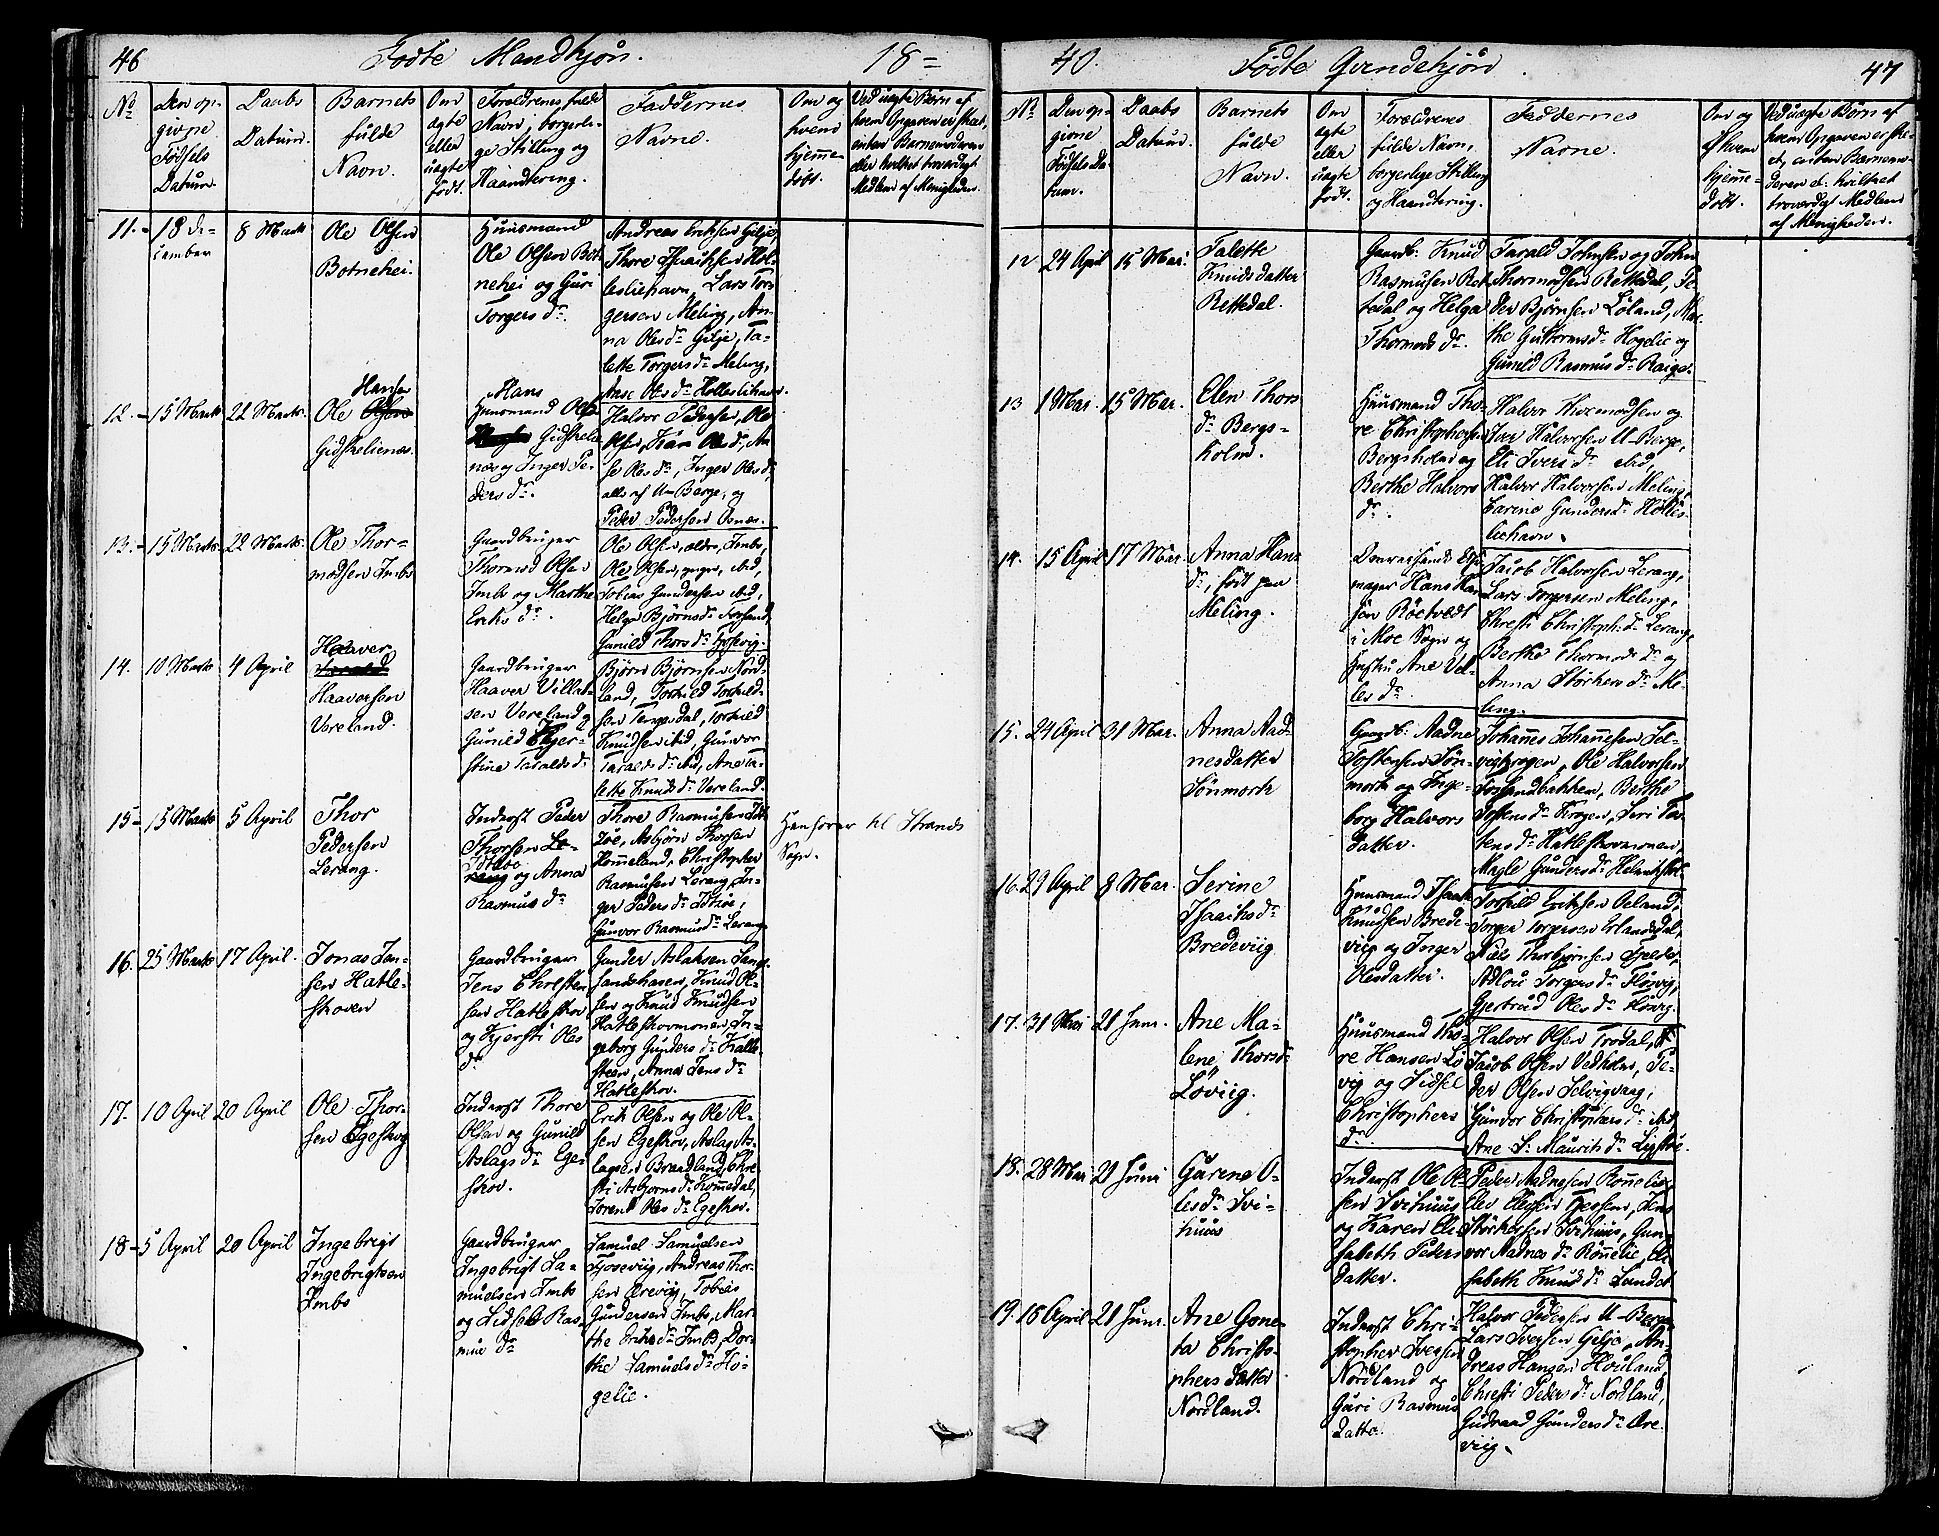 46 Fødte Mandkjøn. 18=
No
Den op-
givne
Fødsels
Datum.
Daabs
Datum.
Barnets
fulde
Navn.
Om
ægte
eller
uægte
født.
Forældrenes fulde
Navn, borgerli-
ge Stilling og
Haandtering.
Faddernes
Navne.
Om og
hvem
hjemme-
døbt.
Ved uægte Børn af
hvem Opgaven er skeet,
enten Barnemoderen
eller hvilket troværdigt
Medlem af Menigheden.
11.- 18 De-
cember
8 Marts
Ole Olsen
Botnehei.
Huusmand
Ole Olsen Bot
nehei og Guri
Torgers dr.
Andreas Eriksen Gilje,
Thore Hol-
lesliehavn, Lars Tor-
gersen Meling, An-
na Oles dr Gilje, Ta-
lette Torgers dr Meling,
Ane Oles dr
12.- 15 Marts 22 Marts.
Hansen
Ole Olsen
Gidskelienæs.
Hans
Huusmand Ole
Gidskelie-
næs og Inger Pe-
ders dr.
Halvor Pedersen, Ole
Olsen, Oles dr, An-
ne Oles dr, Inger Oles dr,
alle af U-Berge, og
Peder Pedersen Osnæs.
13.- 15 Marts 22 Marts.
Ole Thor-
modsen Imbs
Gaardbruger
Thormod Olsen
Imbs og Marthe
Eriks dr.
Ole Olsen, ældre, Imbs,
Ole Olsen, yngre, ibid,
Tobias Gundersen ibid,
Helga Bjørns dr
Gunild Thors dr
14. 10 Marts 4 April
Haaver
Haaversen
Vereland.
Gaardbruger
Haaver Villat-
sen Vereland og
Gunild Kjer-
stine Taralds dr
Bjørn Bjørnsen Nord
land, Torkild Torkild-
sen dal, Torkild
Knudsen ibid, Gunvor
Taralds dr ibid, Ane Ta-
lette Knuds dr Vereland.
15- 15 Marts 5 April
Thor
Pedersen
Lerang.
Inderst Peder
Thorsen Le-
rang og Anna
Rasmus dr
Thore Rasmussen
Asbjørn Thorsen
Hommeland, Christopher
Rasmussen Lerang, In-
ger Peders dr Idsøe,
Gunvor Rasmus dr Lerang
Henhører til Strands
Sogn.
16. 25 Marts 17 April.
Jonas Jen-
sen Hatle-
skoven
Gaardbruger
Jens Christen
sen Hatleskov
og Kjersti Oles
dr
Gunder Aslaksen
Knud Ol-
sen og Knud Knudsen
Hatleskovmonen, In-
geborg Gunders dr Kalle-
steen, Anna Jens dr
Hatleskov.
17. 10 April 20 April
Ole Thor-
sen Egeskog
Inderst Thore
Olsen og Gunild
Aslags dr Ege-
skov.
Erik Olsen og Ole Ol-
sen Egeskov, Aslag As-
lagsen Brandland, Chre-
sti Asbjørns dr Kommedal,
Oles dr Egeskov.
18- 5 April 20 April
Ingebrigt
Ingebrigtsen
Imbs
Gaardbruger
Ingebrigt Sa-
muelsen Imbs
og Lidsel Ras-
mus dr
Samuel Samuelsen
Fosseviig, Andreas Thor-
sen Ørevig, Tobias
Gundersen Imbs, Mar-
the Eriks dr Imbs, Dor-
the Samuels dr Ho-
gelie.
40. Fødte Qvindekjøn. 47
No
Den op-
givne
Fødsels Da-
tum.
Daabs
Datum.
Barnets
fulde
Navn.
Om
ægte
eller
uægte
født.
Forældrenes
fulde Navn,
borgerlige Stilling
og Haandtering.
Faddernes
Navne.
Om og
af hvem
hjemme-
døbt.
Ved uægte Børn af
hvem Opgaven er ske-
et, enten Barnemo-
deren el. hvilket
troværdigt Medlem
af Menigheden.
12 24 April 15 Mai.
Talette
Knudsdatter
Rettedal.
Gaardb: Knud
Rasmusen Ret
tedal og Helga
Thormods dr.
Tarald Johnsen og John
Thormodsen Rettedal, Pe-
der Bjørnsen Løland, Mar-
the Guttorms dr Hogelie og
Gunild Rasmus dr Raige.
13 1 Mai. 15 Mai.
Elen Thors
dr Bergs-
holm.
Huusmand Tho-
re Christophersen
Bergsholm og
Berthe Halvors
dr.
Halvor Thormodsen og
Iver Halvorsen U-Berge,
Eli Ivers dr ibid,
Halvor Halvorsen Meling,
Carine Gunders dr Holles-
liehavn.
14. 15 April 17 Mai.
Anna Han-
dr, født paa
Meling.
Hans Han
sen Røetvedt
i Moe Sogn og
Hustru Ane Vel-
les dr
Jacob Halvorsen Lerang,
Lars Torgersen Meling,
Chresti Christoph: dr Lerang,
Berthe Thormods dr og
Anna Størkers dr Me-
ling.
15. 24 April 31 Mai.
Anna Aad-
nesdatter
Sønmork
Gaardb: Aadne
Tostensen Søn-
mork og Inge-
borg Halvors
datter.
Johannes Johannesen Sel-
vigkrogen, Ole Halvorsen
Fossandbakken, Berthe
Tostens dr Krogen, Siri Tos-
tens dr Hatleskovmonen,
Magle Gunders dr
16. 29 April 8 Mai.
Serine
Isaachsdr
Bredeviig
Huusmand Isaak
Knudsen Brede-
viig og Inger
Olesdatter.
Torkild Eriksen Øeland,
Torger Torgersen Erlandsdal,
Niels Thorbjørnsen Fjelde,
Adlou Torgers dr Fløsvig,
Gjertrud Oles dr
17. 31 Mai 21 Juni.
Ane Ma-
lene Thorsdr
Løviig.
Huusmand Tho-
re Hansen Lø
vig og Sidsel
Christophers
dr.
Halvor Olsen Trodal,
Jacob Olsen Vedholm, Pe-
der Olsen Selvigvaag,
Gunvor Christophers dr ibid,
Ane S: Maurits dr
18. 28 Mai 21 Juni
Gurine O-
lesdr Svi-
huus
Inderst Ole Ol-
sen Svihuus
og Karen Eli-
sabeth Peders
datter.
Peder Aadnesen Rommelie,
Elev Elevsen Jens
Størkersen Svihuus, Gun-
vor Aadnes dr Rømelie, El-
sabeth Knuds dr Lunde.
19. 16 April 21 Juni.
Ane Gone-
ta Christo-
phers datter
Nordland.
Inderst Chri-
stopher Iversen
Nordland og
Guri Rasmus
datter
Halvor Pedersen U-Berge,
Lars Iversen Gilje, An-
dreas Hansen Houland,
Chresti Peders dr Nordland,
Gudraad Gunders dr Øre-
viig.